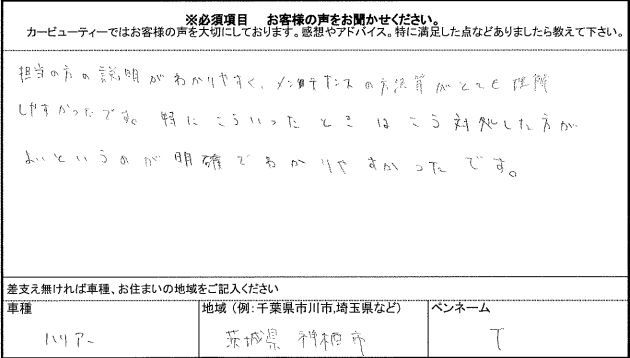 ※必須項目 お客様の声をお聞かせください。
カービューティーではお客様の声を大切にしております。感想やアドバイス。特に満足した点などありましたら教えて下さい。
担当の方の説明がわかりやすく、メンテナンスの方法等がとても理解
しやすかったです。特にこういったときはこう対処した方が
よいというのが明確でわかりやすかったです。
差支え無ければ車種、お住まいの地域をご記入ください
車種 地域 (例:千葉県市川市,埼玉県など) ペンネーム
ハリアー 茨城県 神栖市 T